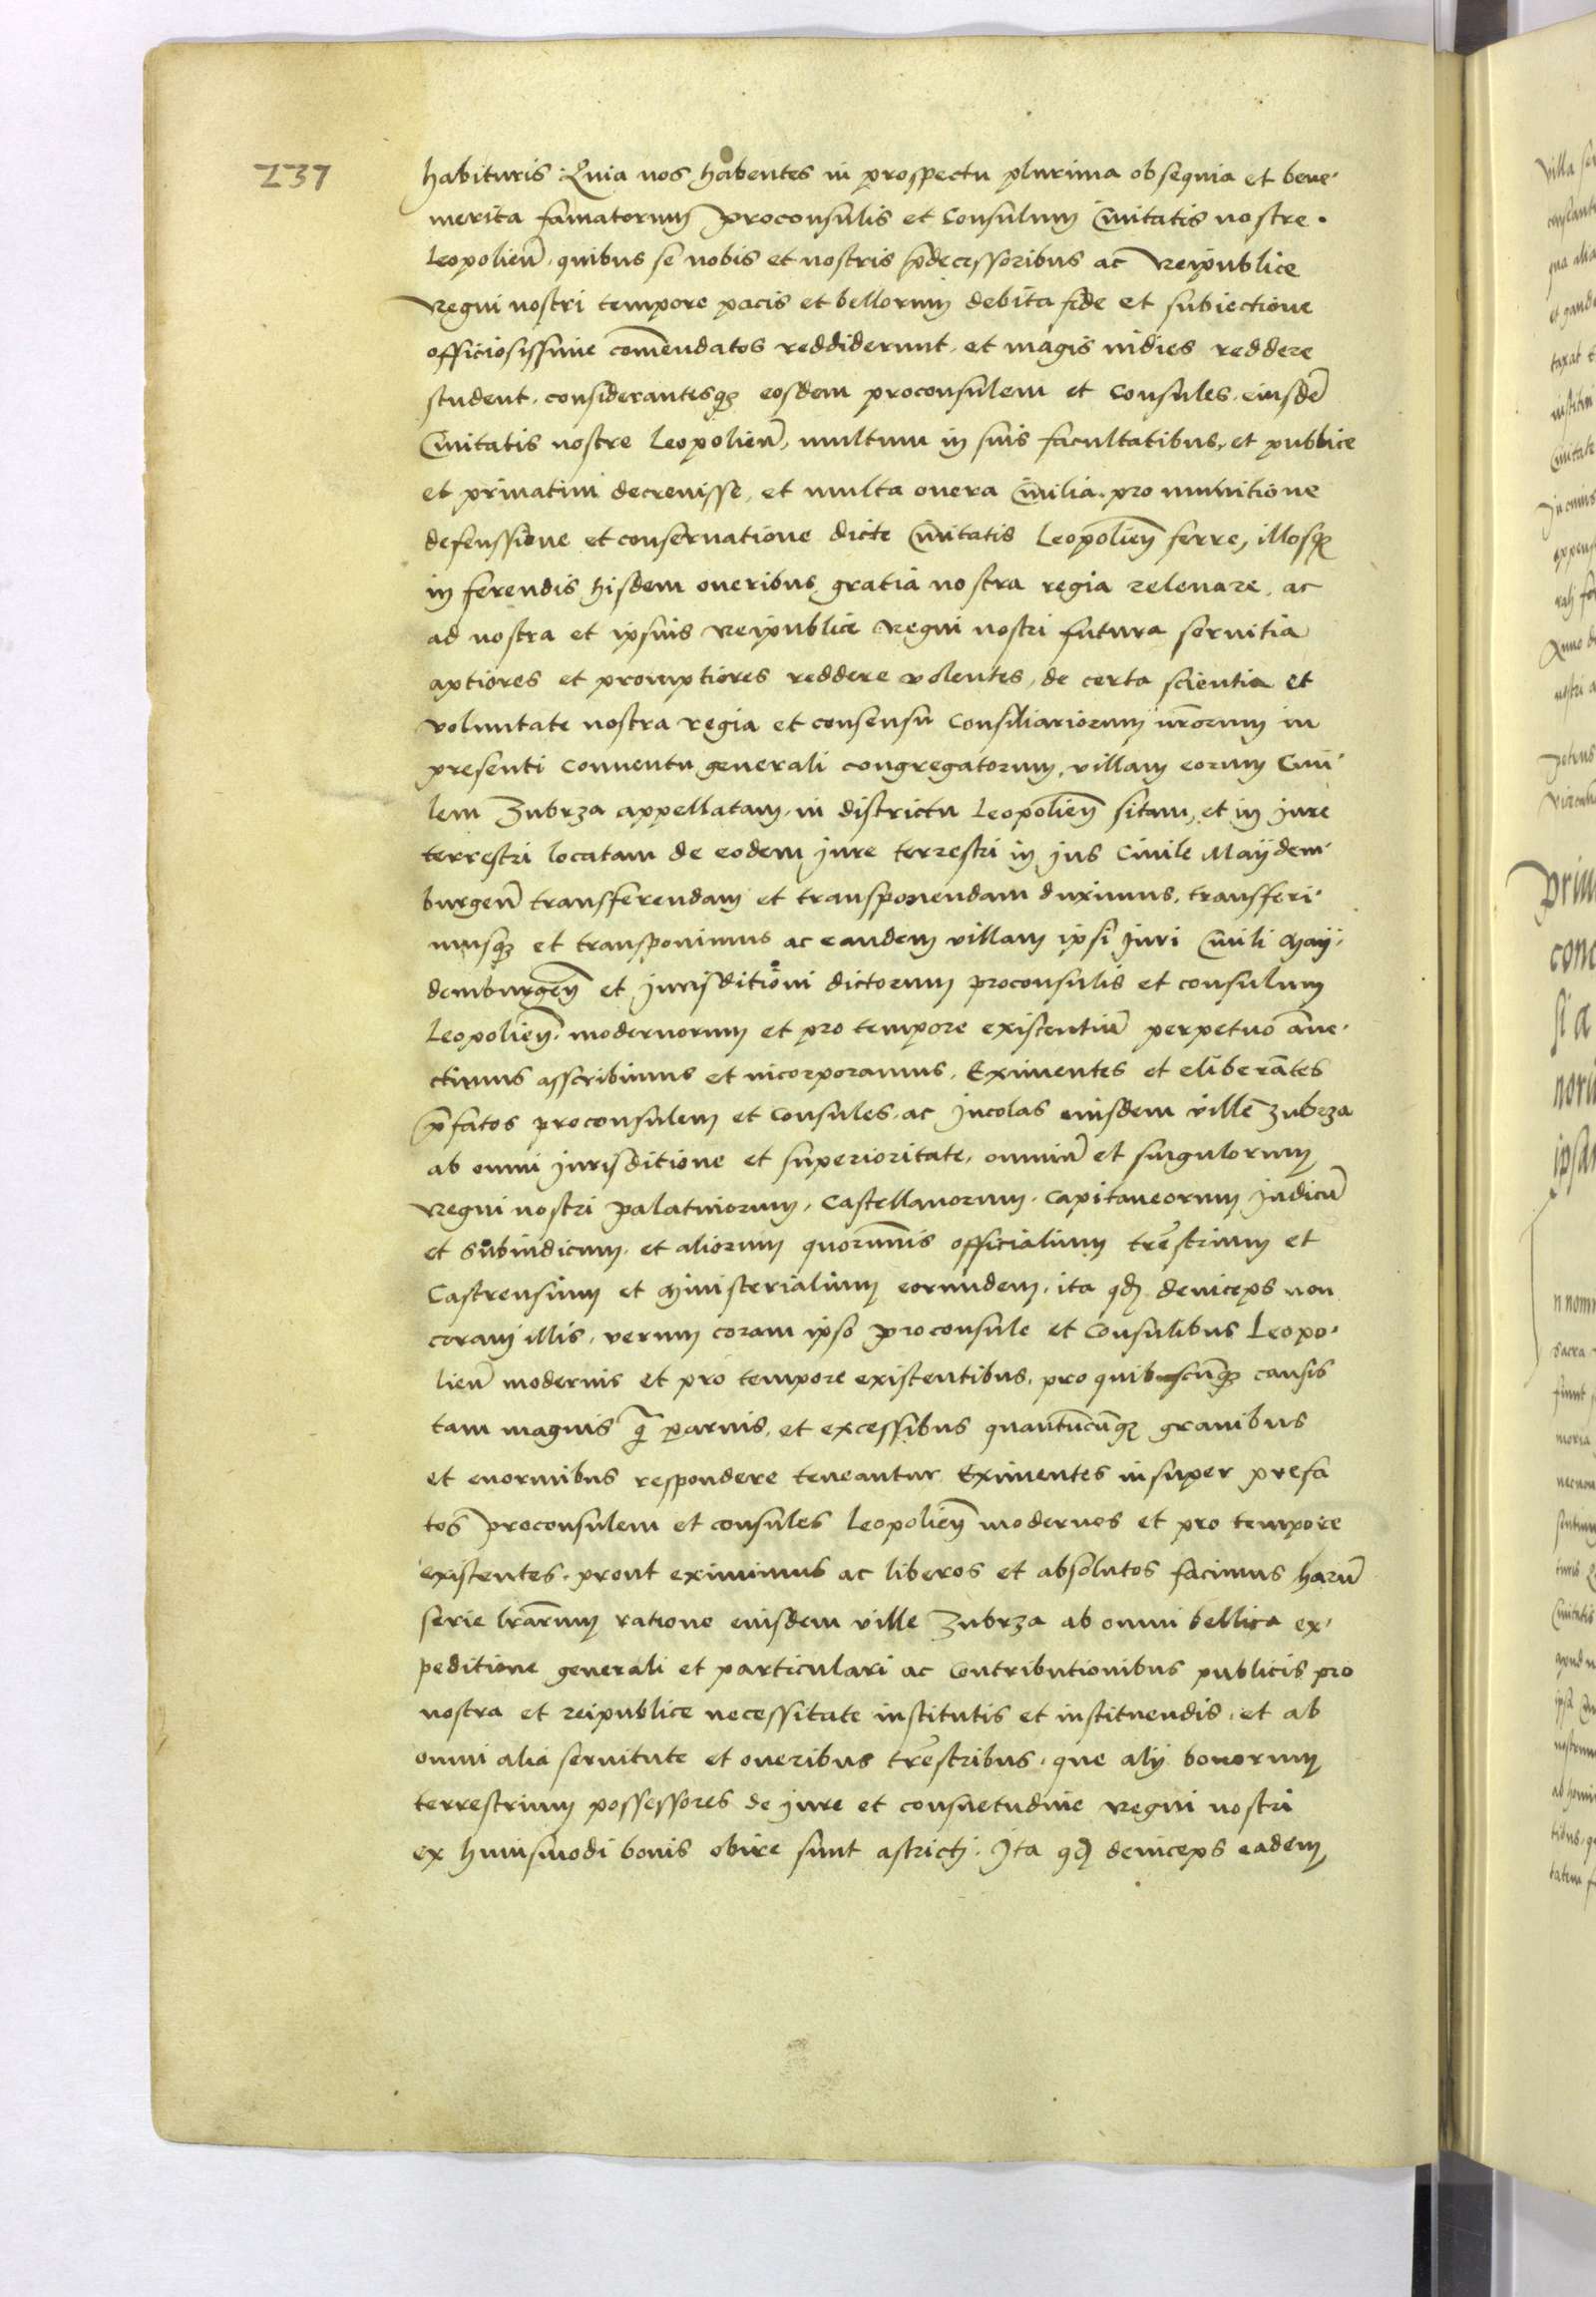 237
habituris. Quia nos habentes in prospectu plurima obsequia et bene-
merita famatorum proconsulis et Consulum Civitatis nostre.
Leopolien̄. quibus se nobis et nostris p̄decessoribus ac Reipublice
Regni nostri tempore pacis et bellorum debita fide et subiectione
officiosissime com̄endatos reddiderunt. et magis indies reddere
student. considerantesq₃ eosdem proconsulem et Consules. eiusdē
Civitatis nostre Leopolien̄, multum in suis facultatibus, et publice
et privatim decrevisse, et multa onera Civilia. pro munitione
defenssione et conservatione dicte Civitatis Leopolien̄ ferre, illosq₃
in ferendis hisdem oneribus gratia nostra regia relevare, ac
ad nostra et ipsius Reipublice Regni nostri futura servitia
aptiores et promptiores reddere volentes, de certa scientia et
voluntate nostra regia et consensu Consiliariorum nr̄orum in
presenti Conventu generali congregatorum, villam eorum Civi-
lem Zubrza appellatam, in districtu Leopolien̄ sitam, et in jure
terrestri locatam de eodem jure terrestri in jus Civile Maijdem-
burgen̄ transferendam et transponendam duximus, transferi-
musq₃ et transponimus ac eandem villam ipsi Juri Civili Maij-
demburgen̄ et Jurisditioni dictorum proconsulis et consulum
Leopolien̄. modernorum et pro tempore existentiū perpetuo ān̄e-
ctimus asscribimus et incorporamus, Eximentes et eliberātes
p̄fatos proconsulem et Consules, ac Jncolas eiusdem ville Zubrza
ab omni jurisditione et superioritate, omniū et singulorum
Regni nostri Palatinorum, Castellanorum, Capitaneorum Judicū
et Subiudicum, et aliorum quorumvis officialium tr̄estrium et
Castrensium et Ministerialium eorundem, ita qd̄ deinceps non
coram illis, verum coram ipso proconsule et Consulibus Leopo-
lien̄ modernis et pro tempore existentibus, pro quibuscūq₃ causis
tam magnis q̄ parvis, et excessibus quantūcūq₃ gravibus
et enormibus respondere teneantur Eximentes insuper prefa
tos proconsulem et consules Leopolien̄ modernos et pro tempore
existentes, prout eximimus ac liberos et absolutos facimus harū
serie lr̄arum ratione eiusdem ville Zubrza ab omni bellica ex-
peditione generali et particulari ac Contributionibus publicis pro
nostra et reipublice necessitate institutis et instituendis, et ab
omni alia servitute et oneribus tr̄estribus, que alij bonorum
terrestrium possessores de jure et consuetudine Regni nostri
ex huiusmodi bonis obire sunt astricti. Jta qd̄ deinceps eadem